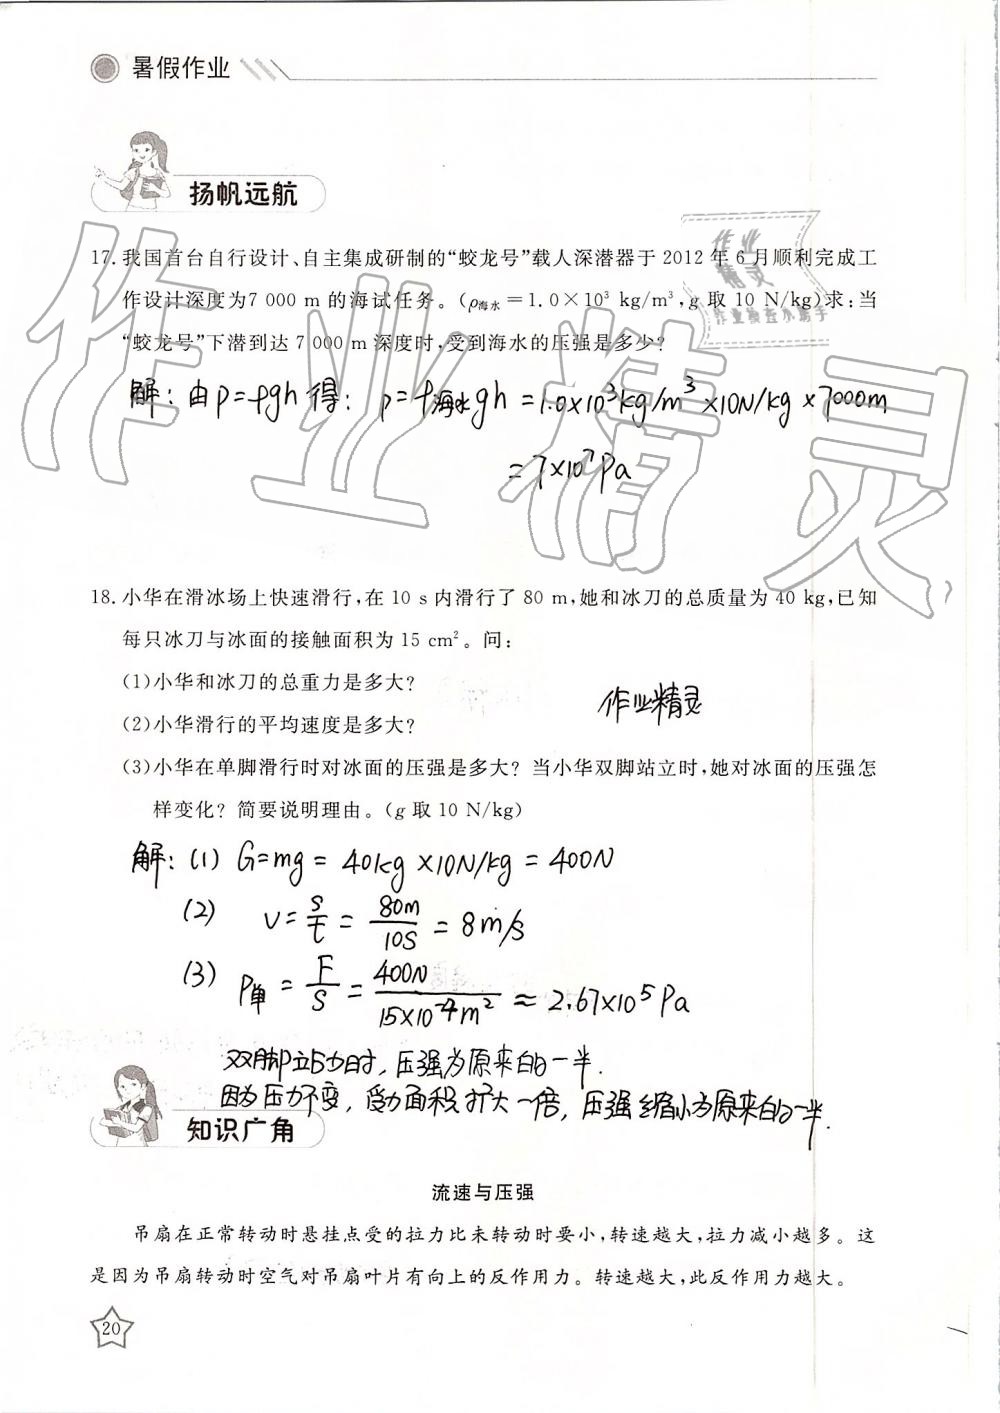 暑假作业
扬帆远航
17. 我国首台自行设计、自主集成研制的“蛟龙号”载人深潜器于 2012 年 6 月顺利完成工
作设计深度为7 000 m 的海试任务。(ρ海水＝1.0×10³ kg/m³，g 取 10 N/kg)求：当
“蛟龙号”下潜到达 7 000 m 深度时，受到海水的压强是多少？
作业
精灵
作业检查小助手
解：由p=ρgh得：p=ρ海水gh=1.0×10³kg/m³×10N/kg×7000m
=7×10⁷Pa
作业精灵
18. 小华在滑冰场上快速滑行，在 10 s 内滑行了 80 m，她和冰刀的总质量为 40 kg，已知
每只冰刀与冰面的接触面积为 15 cm²。问：
(1)小华和冰刀的总重力是多大？
(2)小华滑行的平均速度是多大？
作业精灵
(3)小华在单脚滑行时对冰面的压强是多大？当小华双脚站立时，她对冰面的压强怎
样变化？简要说明理由。(g 取 10 N/kg)
解：(1) G=mg=40kg×10N/kg=400N
(2) v=s/t=80m/10s=8m/s
(3) P单=F/S=400N/15×10⁻⁴m²≈2.67×10⁵Pa
双脚立时，压强为原来的一半.
因为压力不变，受力面积扩大一倍，压强缩小为原来的一半.
知识广角
流速与压强
吊扇在正常转动时悬挂点受的拉力比未转动时要小，转速越大，拉力减小越多。这
是因为吊扇转动时空气对吊扇叶片有向上的反作用力。转速越大，此反作用力越大。
20